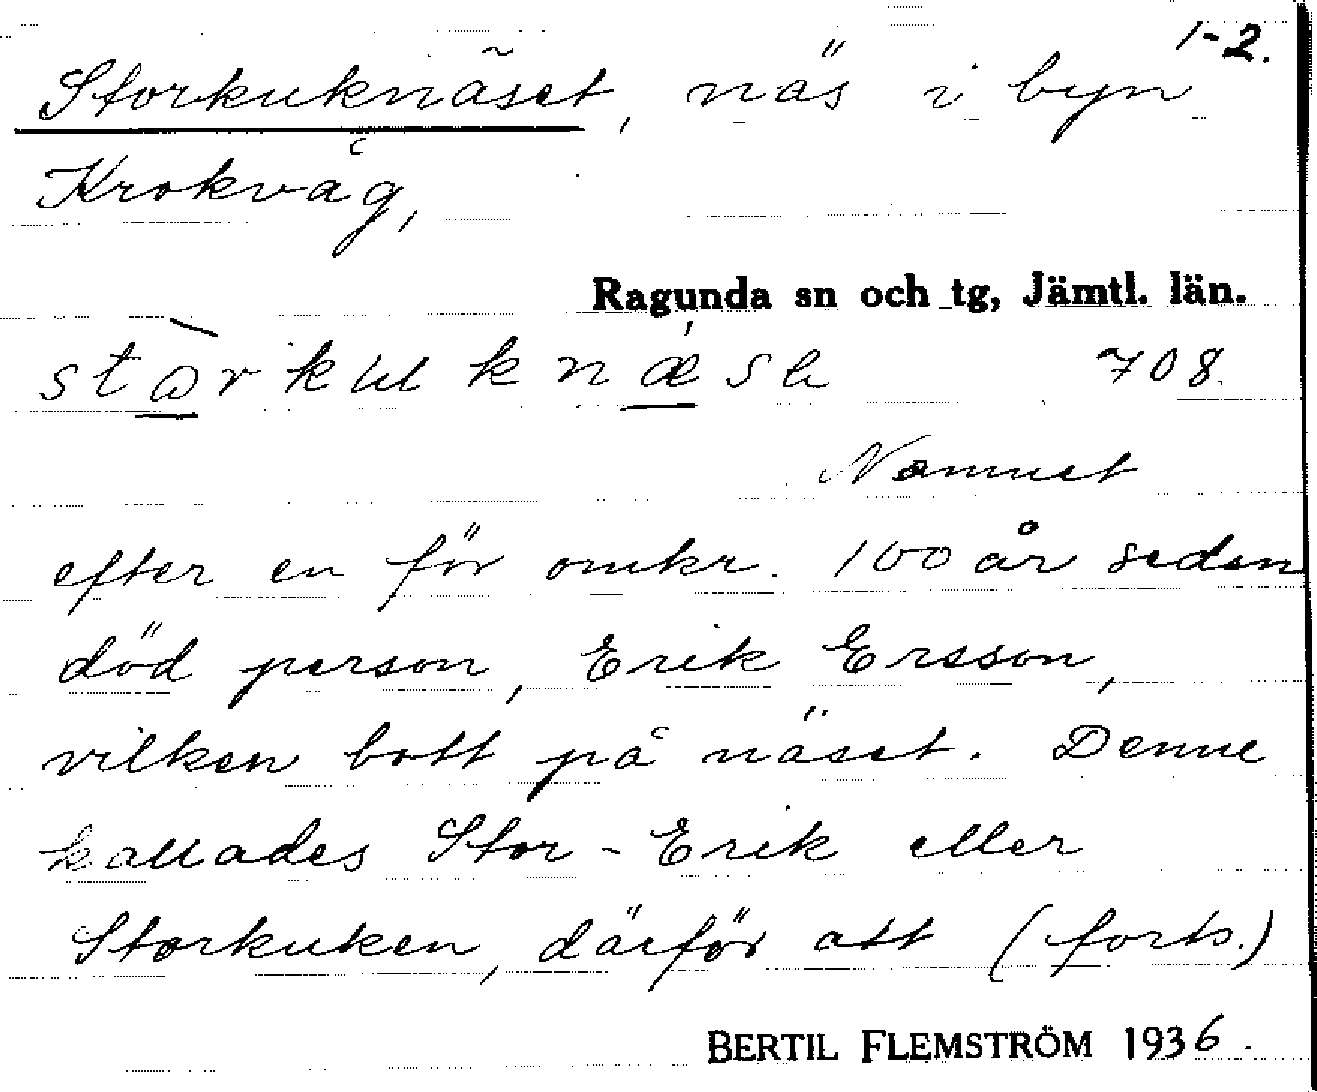 1-2.
Storkuknäset, näs i byn
Krokvåg,
Ragunda sn och tg, Jämtl. län.
708
Namnet
efter en för omkr. 100 år sedan
död person, Erik Ersson,
vilken bott på näset. Denne
kallades Stor-Erik eller
Storkuken, därför att (forts.)
BERTIL FLEMSTRÖM 1936.